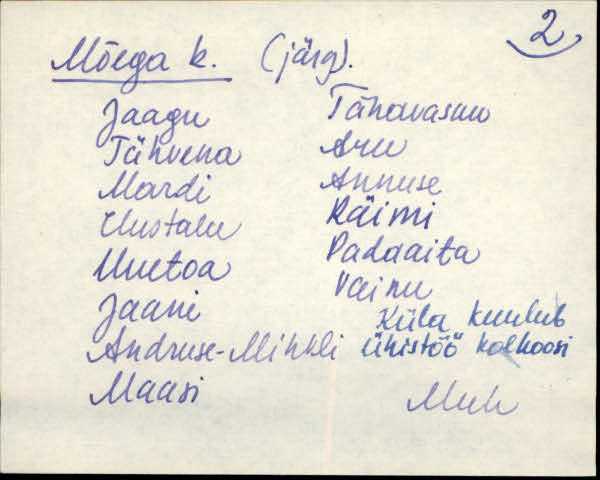 2
Mõega k. (järg).
Jaagu
Tähvena
Mardi
Uustalu
Uuetoa
Jaani
Andruse-Mihkli
Maasi
Tähavasuu
Aru
Annuse
Räimi
Padaaita
Vainu
Küla kuulub
Ühistöö kolhoosi
Muh